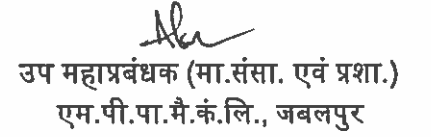 उप महाप्रबंधक (मा.संसा. एवं प्रशा.)
एम.पी.पा.मै.कं.लि., जबलपुर